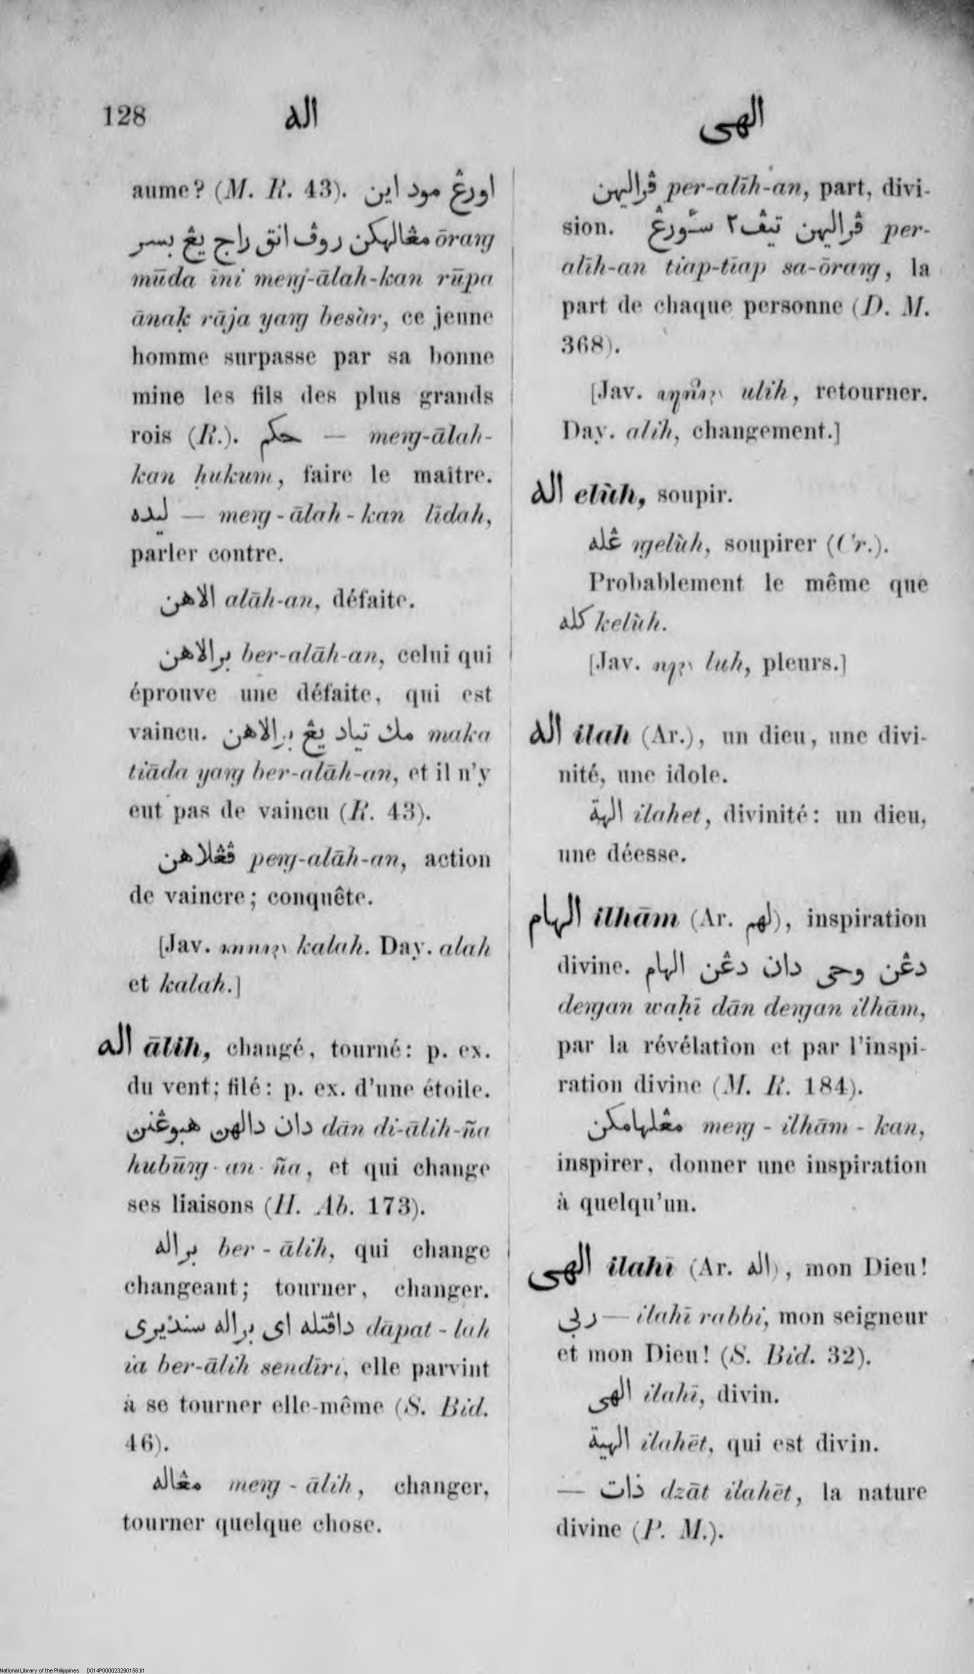 128
اله
الهى
aume? (M. R. 43). اورڠ مود اين
مڠالهكن روڤ انق راج يڠ بسر ōrang
mūda īni meng-ālah-kan rūpa
ānaḳ rāja yang besàr, ce jeune
homme surpasse par sa bonne
mine les fils des plus grands
rois (R.). حكم — meng-ālah-
kan ḥukum, faire le maître.
ليده — meng-ālah-kan līdah,
parler contre.
الاهن alāh-an, défaite.
برالاهن ber-alāh-an, celui qui
éprouve une défaite, qui est
vaincu. مك تياد يڠ برالاهن maka
tiāda yang ber-alāh-an, et il n'y
eut pas de vaincu (R. 43).
ڤڠلاهن peng-alāh-an, action
de vaincre; conquête.
[Jav. kalah. Day. alah
et kalah.]
اله ālih, changé, tourné: p. ex.
du vent; filé: p. ex. d'une étoile.
دان دالهن هبوڠنن dān di-ālih-ña
hubūng-an-ña, et qui change
ses liaisons (H. Ab. 173).
براله ber-ālih, qui change
changeant; tourner, changer.
داڤتله اى براله سنديرى dāpat-lah
ia ber-ālih sendīri, elle parvint
à se tourner elle-même (S. Bid.
46).
مڠاله meng-ālih, changer,
tourner quelque chose.
ڤراليهن per-alīh-an, part, divi-
sion. ڤراليهن تيڤ٢ سٔورڠ per-
alīh-an tiap-tiap sa-ōrang, la
part de chaque personne (D. M.
368).
[Jav. ulih, retourner.
Day. alih, changement.]
اله elùh, soupir.
ڠله ngelùh, soupirer (Cr.).
Probablement le même que
كله kelùh.
[Jav. luh, pleurs.]
اله ilah (Ar.), un dieu, une divi-
nité, une idole.
الهة ilahet, divinité: un dieu,
une déesse.
الهام ilhām (Ar. لهم), inspiration
divine. دڠن وحى دان دڠن الهام
dengan waḥī dān dengan ilhām,
par la révélation et par l'inspi-
ration divine (M. R. 184).
مڠلهامكن meng-ilhām-kan,
inspirer, donner une inspiration
à quelqu'un.
الهى ilahī (Ar. اله), mon Dieu!
ربي — ilahī rabbi, mon seigneur
et mon Dieu! (S. Bid. 32).
الهى ilahī, divin.
الهية ilahēt, qui est divin.
— ذات dzāt ilahēt, la nature
divine (P. M.).
National Library of the Philippines